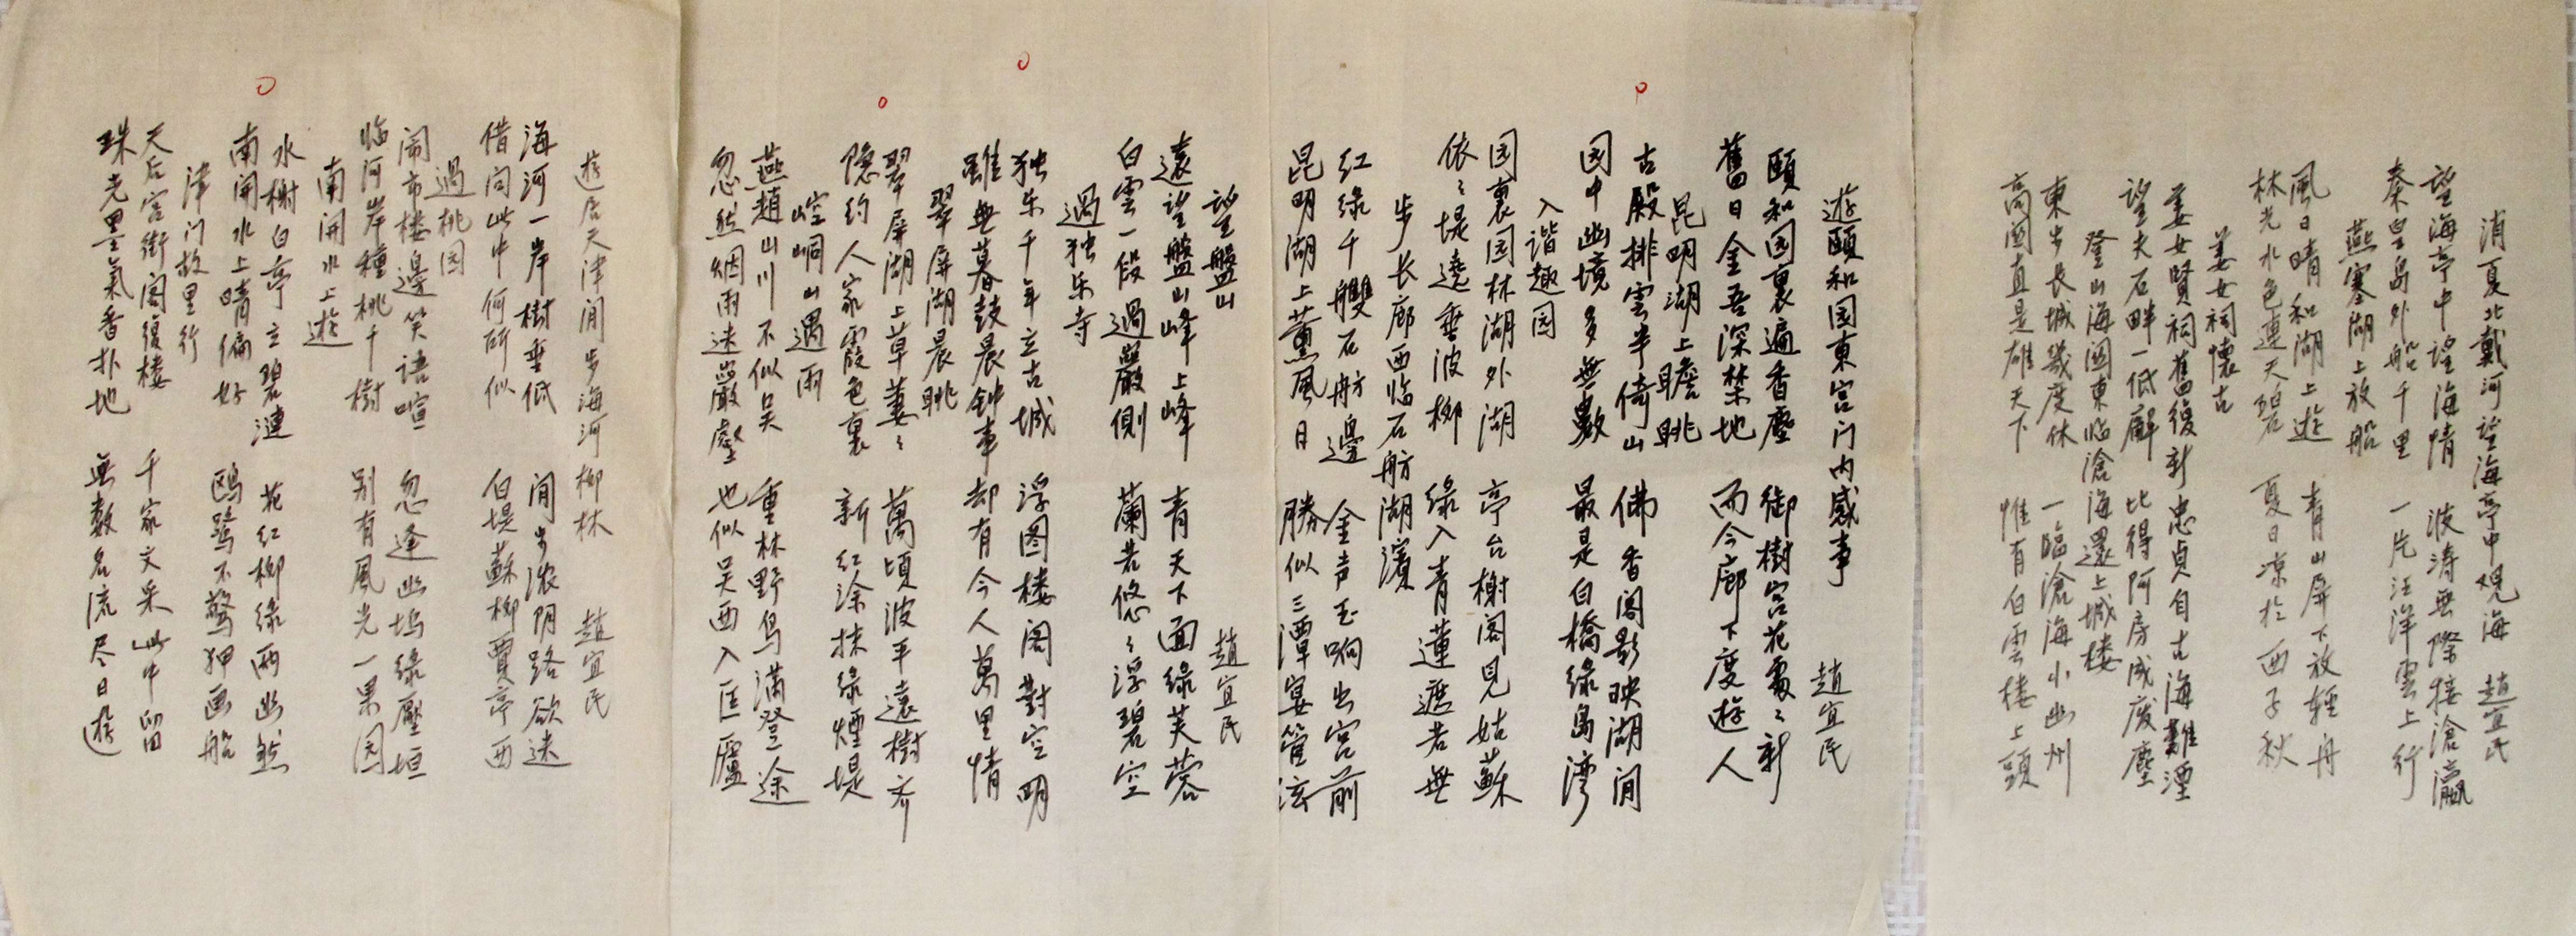 消夏北戴河望海亭中观海 趙宜民
望海亭中望海情 波涛無際接滄瀛
秦皇島外船千里 一片汪洋雲上行
燕塞湖上放船
風日晴和湖上遊 青山屏下放輕舟
林光水色連天碧 夏日凉於西子秋
姜女祠懷古
姜女賢祠舊復新 忠貞自古海難湮
望夫石畔一低廻 比得阿房成废塵
登山海關東临滄海還上城楼
東步長城幾度休 一臨滄海小幽州
高閣直是雄天下 惟有白雲楼上頭
遊頤和园東宫门内感事 趙宜民
頤和园裏遍香塵 御樹宫花處〻新
舊日金吾深禁地 而今廊下度遊人
昆明湖上瞻眺
古殿排雲半倚山 佛香閣影映湖间
园中幽境多無數 最是白橋綠島湾
入諧趣园
园裏园林湖外湖 亭台榭阁見姑蘇
依〻堤遶垂波柳 綠入青蓮遮若無
步长廊西临石舫湖濱
红綠千艭石舫邊 金声玉响出宫前
昆明湖上薰風日 勝似三潭宴管泫
望盤山 趙宜民
遠望盤山峰上峰 青天下面綠芙蓉
白雲一段過巖側 蘭若悠〻浮碧空
過独乐寺
独乐千年立古城 浮图楼阁對空明
雖無暮鼓晨钟事 却有今人萬里情
翠屏湖晨眺
翠屏湖上草萋〻 萬頃波平遠樹齐
隐约人家霞色裏 新红涂抹綠煙堤
崆峒山遇雨
燕趙山川不似吴 重林野鸟滿登途
忽然烟雨迷巖壑 也似吴西入匡廬
遊居天津间步海河柳林 趙宜民
海河一岸樹垂低 间步浓阴路欲迷
借问此中何所似 白堤蘇柳賈亭西
過桃园
闹市楼邊笑语喧 忽逢幽塢綠壓垣
临河岸種桃千樹 别有風光一果园
南開水上遊
水榭白亭立碧漣 花红柳绿两幽然
南開水上晴偏好 鴎鹭不驚狎画船
津门故里行
天后宫街阁復楼 千家文采此中留
珠光墨氣香扑地 無數名流尽日遊